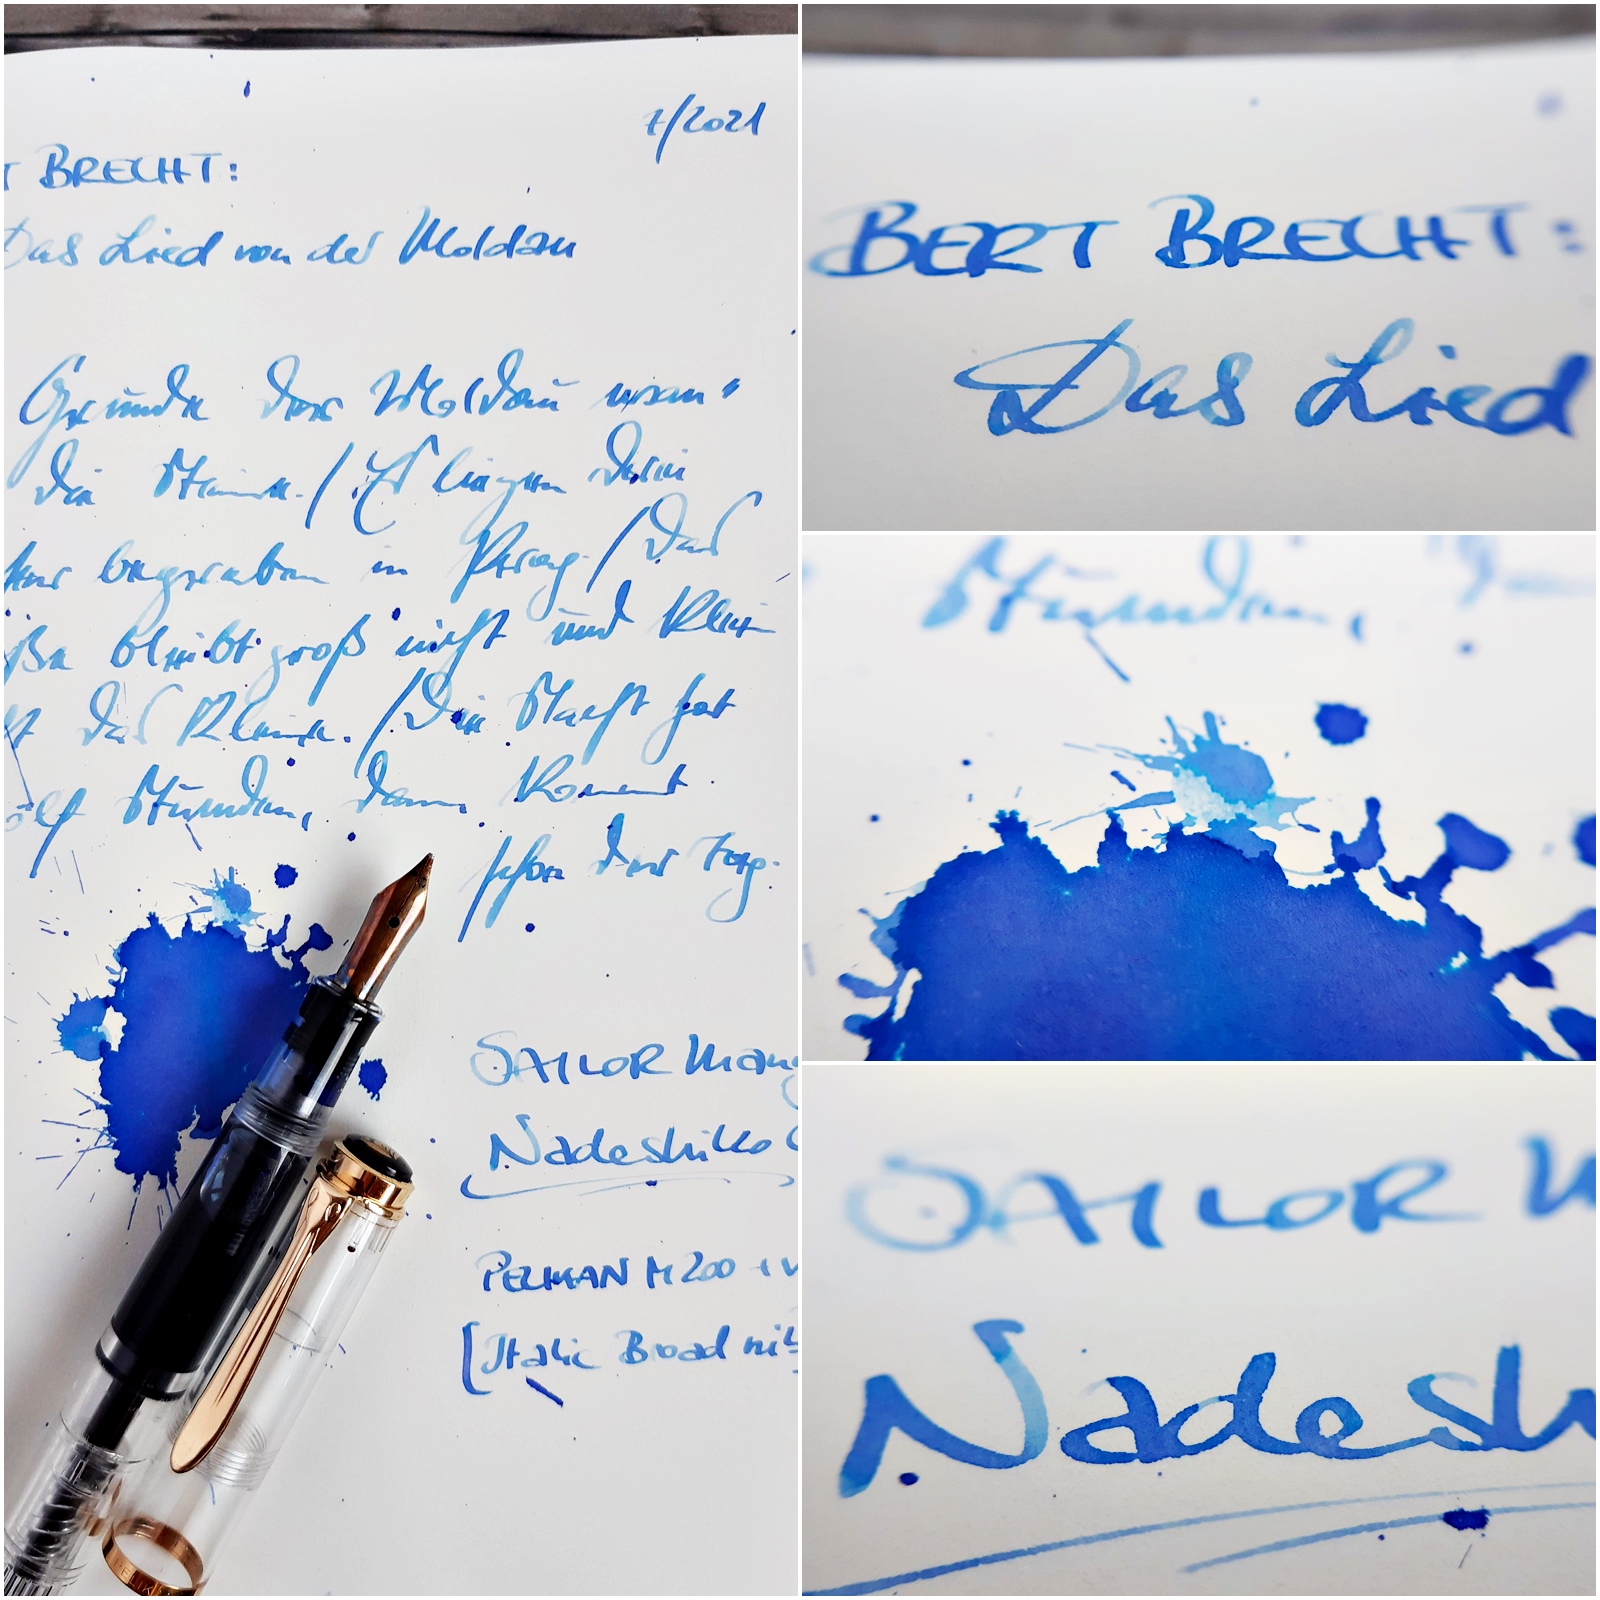 7/2021
T BRECHT:
Das Lied von der Moldau
Grunde der Moldau wan"
die Steine. / Es liegen drei
ser begraben in Prag. / Das
oße bleibt groß nicht und klein
ht das Kleine. / Die Nacht hat
ölf Stunden, dann kommt
schon der Tag.
SAILOR Many
Nadeshiko
PELIKAN M200 + V
[Italic Broad nib
BERT BRECHT:
Das Lied
Stunden,
SAILOR M
Nadesh